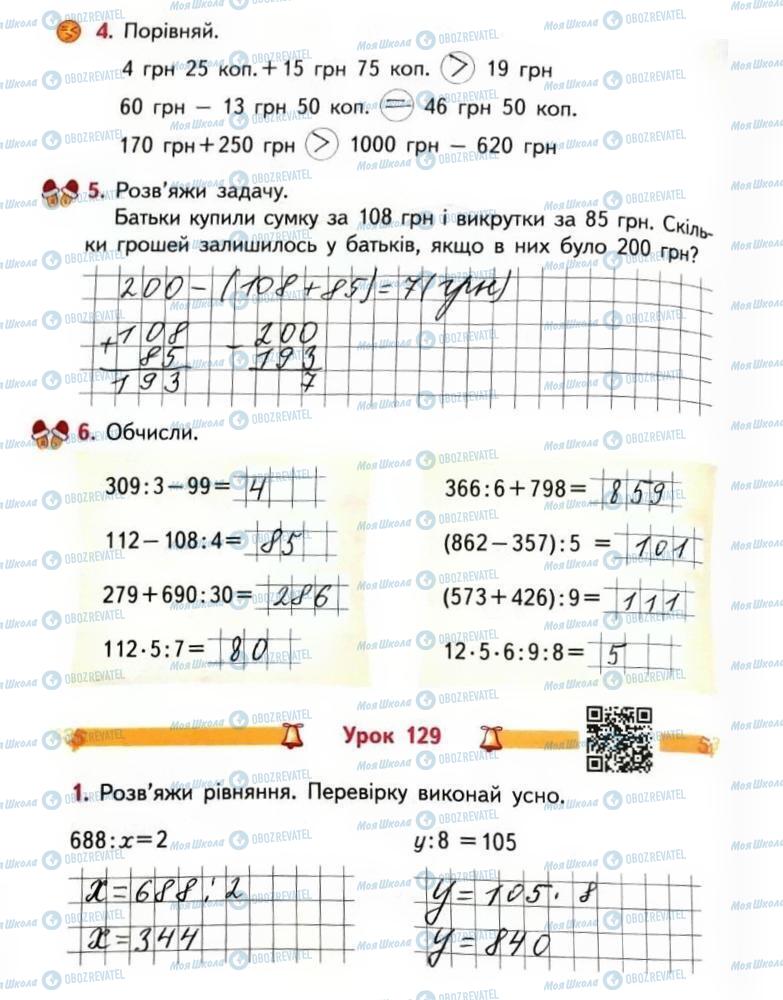 4. Порівняй.
4 грн 25 коп. + 15 грн 75 коп. > 19 грн
60 грн – 13 грн 50 коп. = 46 грн 50 коп.
170 грн + 250 грн > 1000 грн – 620 грн
5. Розв'яжи задачу.
Батьки купили сумку за 108 грн і викрутки за 85 грн. Скіль-
ки грошей залишилось у батьків, якщо в них було 200 грн?
200 – (108 + 85) = 7 (грн)
+ 108 – 200
85 193
193 7
6. Обчисли.
309 : 3 – 99 = 4 366 : 6 + 798 = 859
112 – 108 : 4 = 85 (862 – 357) : 5 = 101
279 + 690 : 30 = 286 (573 + 426) : 9 = 111
112 · 5 : 7 = 80 12 · 5 · 6 : 9 : 8 = 5
Урок 129
1. Розв'яжи рівняння. Перевірку виконай усно.
688 : x = 2 y : 8 = 105
x = 688 : 2 y = 105 · 8
x = 344 y = 840